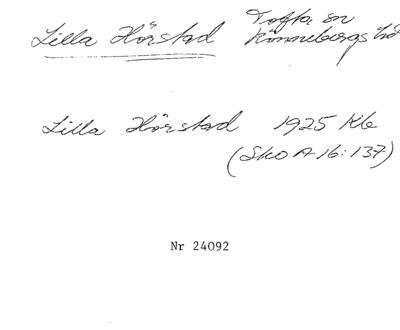 Lilla Hörstad Tofta sn
Rönnebergs hd
Lilla Hörstad 1925 Kb
(Sko A 16:137)
Nr 24092